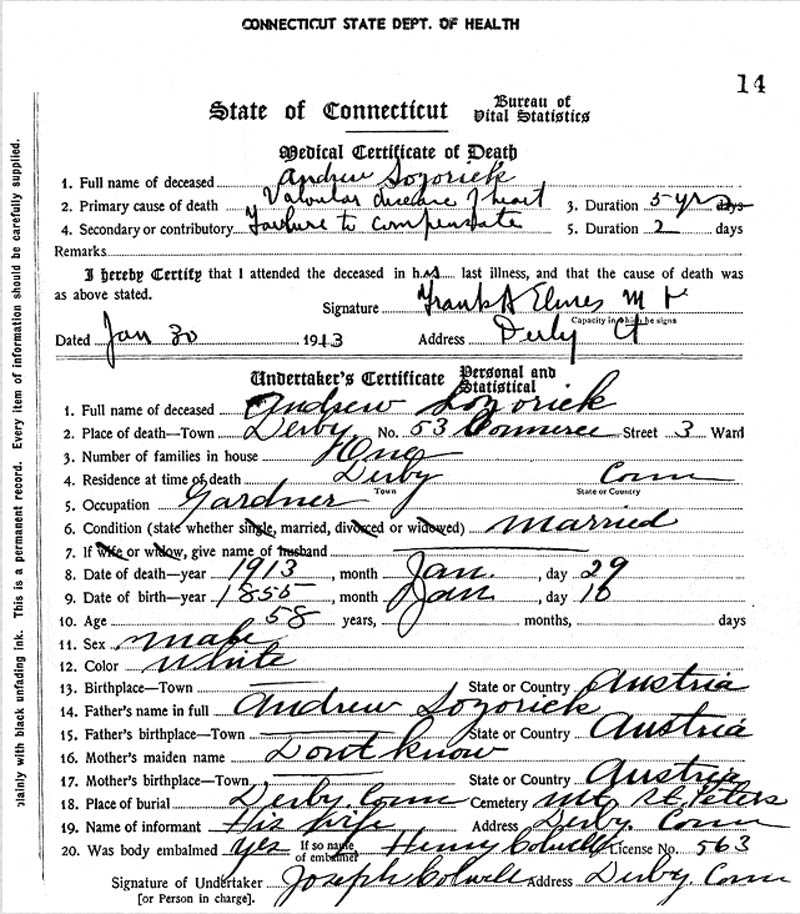 CONNECTICUT STATE DEPT. OF HEALTH
14
State of Connecticut Bureau of Vital Statistics
Medical Certificate of Death
1. Full name of deceased Andrew Sozorick
2. Primary cause of death Valvular disease of heart 3. Duration 5 yrs days
4. Secondary or contributory Failure to compensate 5. Duration 2 days
Remarks
I hereby Certify that I attended the deceased in his last illness, and that the cause of death was
as above stated.
Signature Frank A Elmes M D
Capacity in which he signs
Dated Jan 30 1913 Address Derby Ct
Undertaker's Certificate Personal and Statistical
1. Full name of deceased Andrew Sozorick
2. Place of death—Town Derby, No. 53 Commerce Street 3 Ward
3. Number of families in house One
4. Residence at time of death Derby Conn
Town State or Country
5. Occupation Gardner
6. Condition (state whether single, married, divorced or widowed) Married
7. If wife or widow, give name of husband
8. Date of death—year 1913, month Jan., day 29
9. Date of birth—year 1855, month Jan, day 10
10. Age 58 years, months, days
11. Sex Male
12. Color White
13. Birthplace—Town State or Country Austria
14. Father's name in full Andrew Sozorick
15. Father's birthplace—Town State or Country Austria
16. Mother's maiden name Dont know
17. Mother's birthplace—Town State or Country Austria
18. Place of burial Derby. Conn Cemetery Mt St. Peters
19. Name of informant His wife Address Derby. Conn
20. Was body embalmed Yes If so name of embalmer Henry Colwell License No. 563
Signature of Undertaker Joseph Colwell Address Derby. Conn
[or Person in charge].
plainly with black unfading ink. This is a permanent record. Every item of information should be carefully supplied.